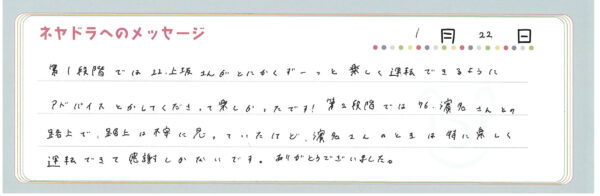 ネヤドラへのメッセージ
1月22日
第1段階では22.上坂さんがとにかくずーっと楽しく運転できるように
アドバイスとかしてくださって楽しかったです！第2段階では76.濱名さんとの
路上で、路上は不安に思っていたけど、濱名さんのときは特に楽しく
運転できて感謝しかないです。ありがとうございました。